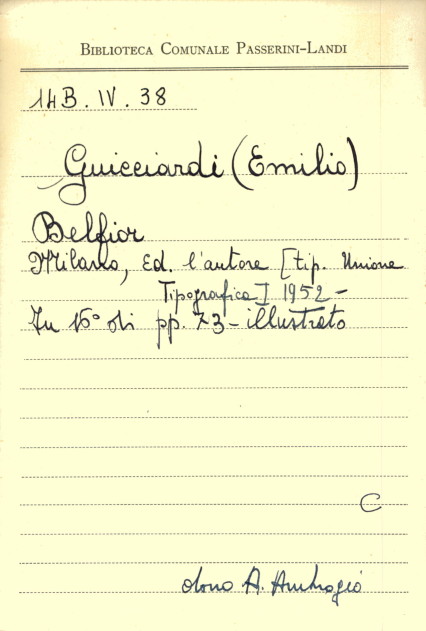 BIBLIOTECA COMUNALE PASSERINI-LANDI
14B. IV. 38
Guicciardi (Emilio)
Belfior
Milano, Ed. l'autore [tip. Unione
Tipografica] 1952 -
In 16° di pp. 73 - illustrato
C
dono A. Ambrogio